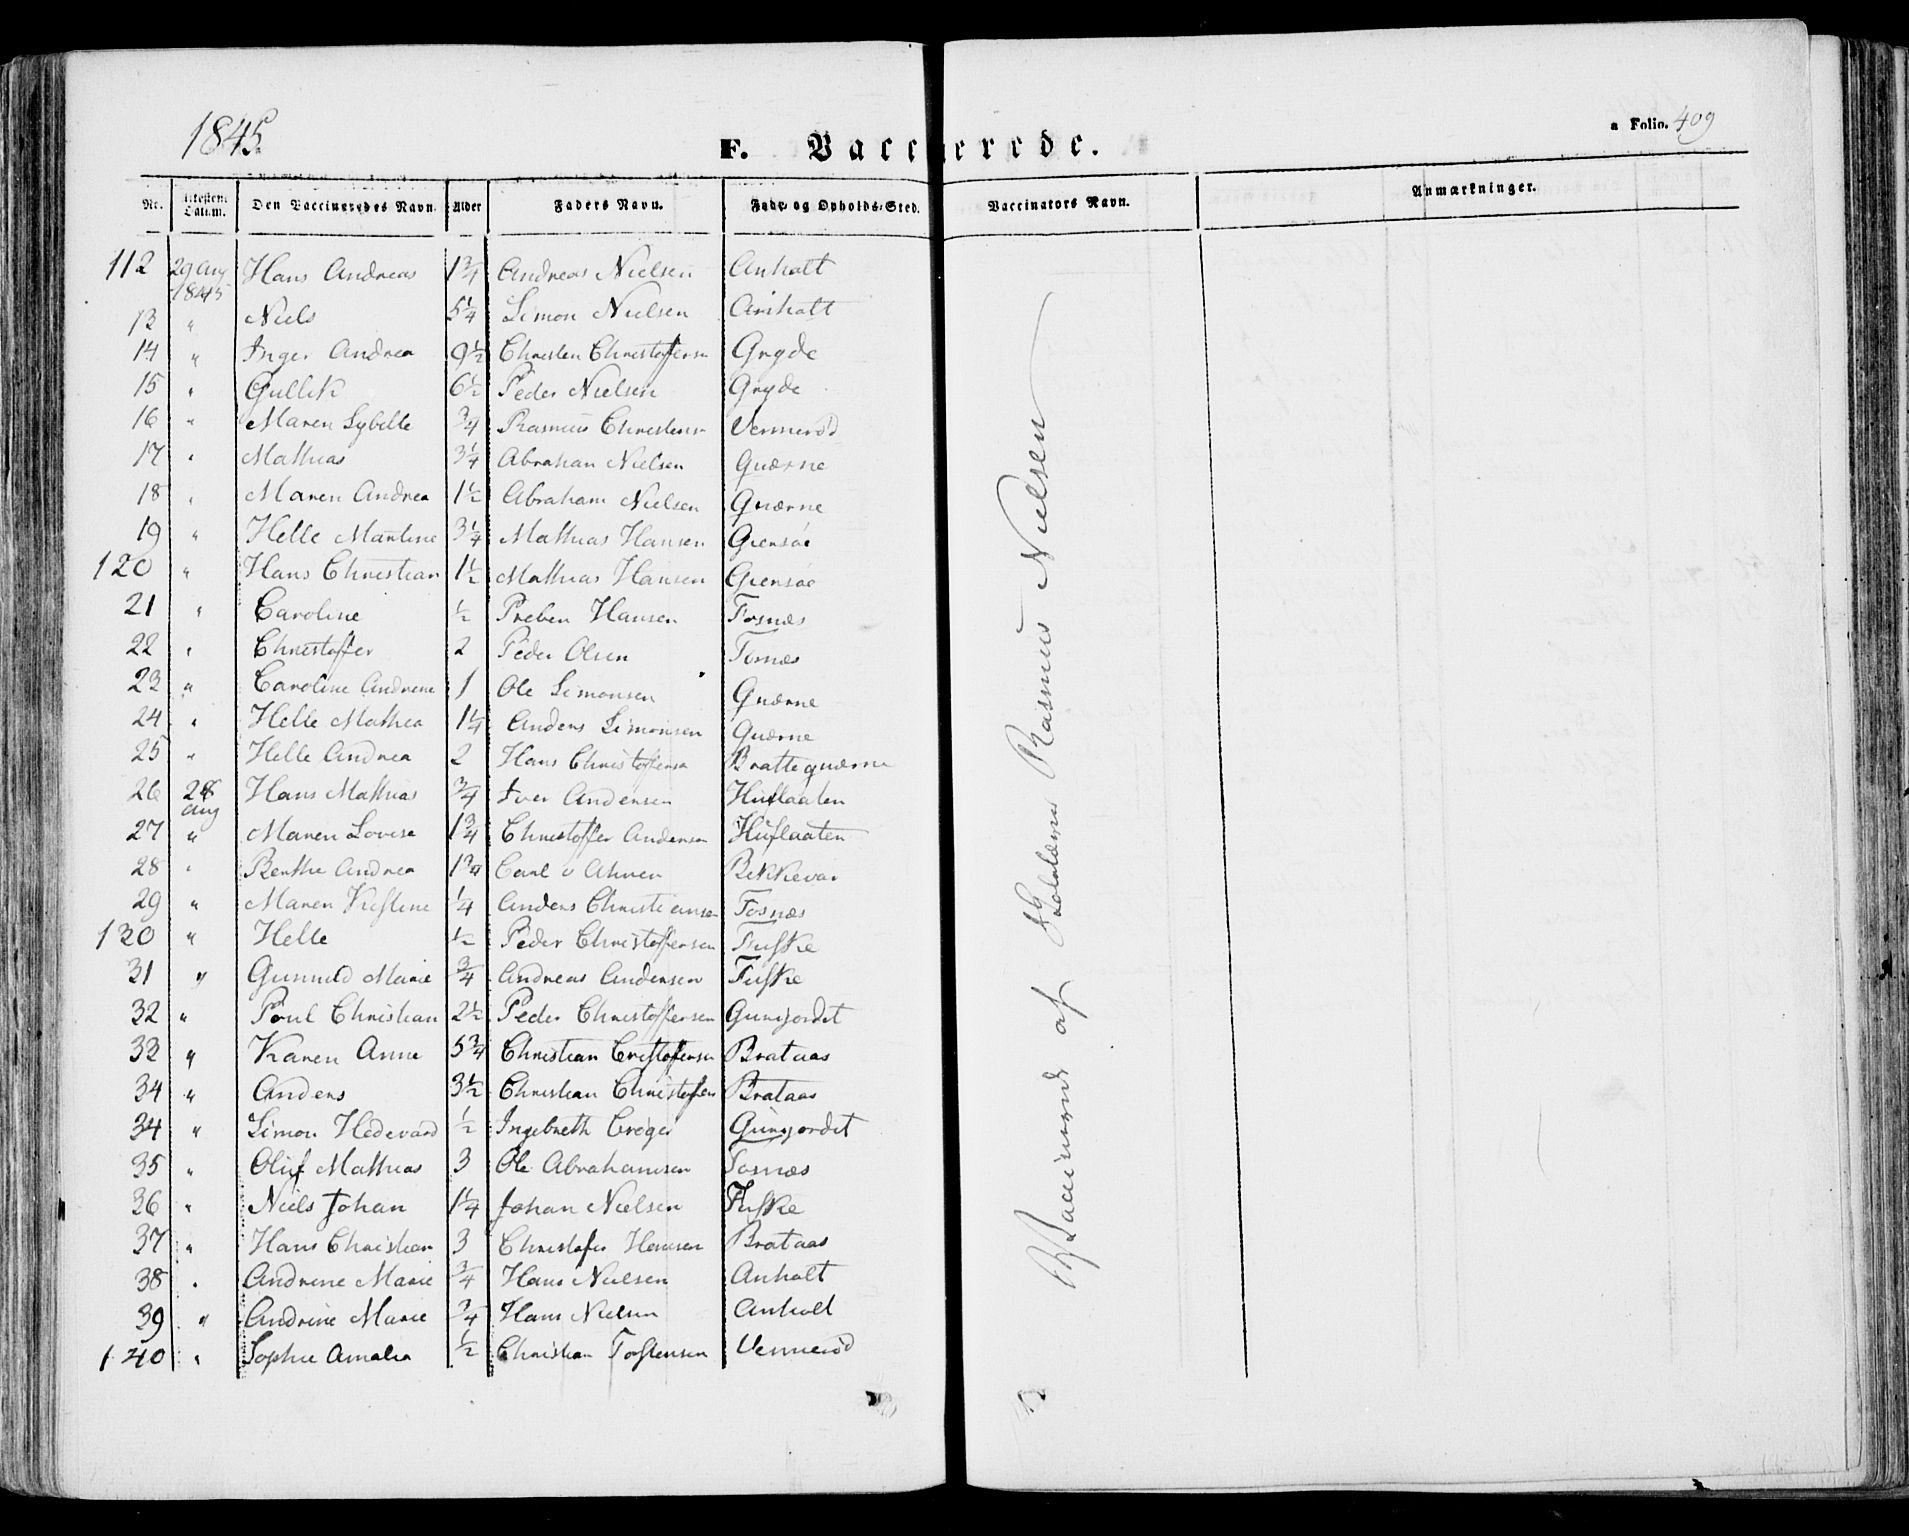 1845.
F. Vaccinerede.
a Folio. 409
Nr. Attestens Datum. Den Vaccineredes Navn. Alder Faders Navn. Føde- og Opholds-Sted. Vaccinators Navn. Anmærkninger.
112 29 Aug 1845 Hans Andreas 1 3/4 Andreas Nielsen Anholt
13 " Niels 5 1/4 Simon Nielsen Anholt
14 " Inger Andrea 9 1/2 Christen Christoffersen Gryde
15 " Gullik 6 1/2 Peder Nielsen Gryde
16 " Maren Sybille 3/4 Rasmus Christens Vermerød
17 " Mathias 3 1/4 Abraham Nielsen Quærne
18 " Maren Andrea 1 1/2 Abraham Nielsen Quærne
19 " Helle Martine 3 1/4 Mathias Hansen Giensøe
120 " Hans Christian 1 1/2 Mathias Hansen Giensøe
21 " Caroline 1/2 Preben Hansen Fosnæs
22 " Christoffer 2 Peder Olsen Fosnæs
23 " Caroline Andrene 1 Ole Simonsen Quærne
24 " Helle Mathea 1 1/4 Anders Simonsen Quærne
25 " Helle Andrea 2 Hans Christoffersen Brattequærne
26 28 Aug Hans Mathias 3/4 Iver Andersen Huflaaten
27 " Maren Lovise 1 3/4 Christoffer Andersen Huflaaten
28 " Berthe Andrea 1 3/4 Carl v Ahnen Bekkevar
29 " Maren Kistine 1/4 Anders Christiansen Fosnæs
130 " Helle 1/2 Peder Christoffersen Fuske
31 " Gunnild Marie 3/4 Andreas Andersen Fuske
32 " Poul Christian 2 1/2 Peder Christoffersen Gunjordet
33 " Karen Anne 5 3/4 Christian Cristoffersen Brataas
34 " Anders 3 1/2 Christian Christoffers Brataas
34 " Simon Hedevard 1/2 Ingebreth Creger Gunjordet
35 " Oluf Mathias 3 Ole Abrahamsen Fosnæs
36 " Niels Johan 1 1/4 Johan Nielsen Fuske
37 " Hans Christian 3 Christofer Hansen Brataas
38 " Andrine Marie 3/4 Hans Nielsen Anholt
39 " Andrine Marie 3/4 Hans Nielsen Anholt
140 " Sophie Amalia 1/2 Christian Tostensen Vermerød
Vaccinerede af Skolelærer Rasmus Nielsen